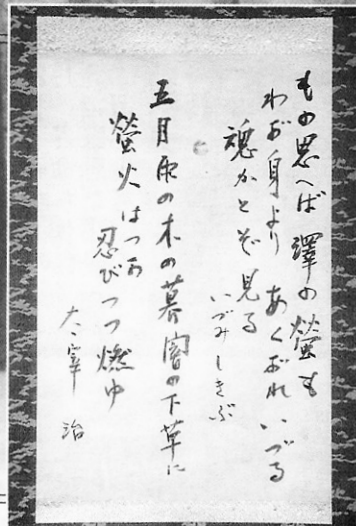 もの思へば 澤の螢も
わが身より あくがれいづる
魂かとぞ見る
いづみしきぶ
五月雨の木の暮闇の下草に
螢火はつか
忍びつつ燃ゆ
太宰 治